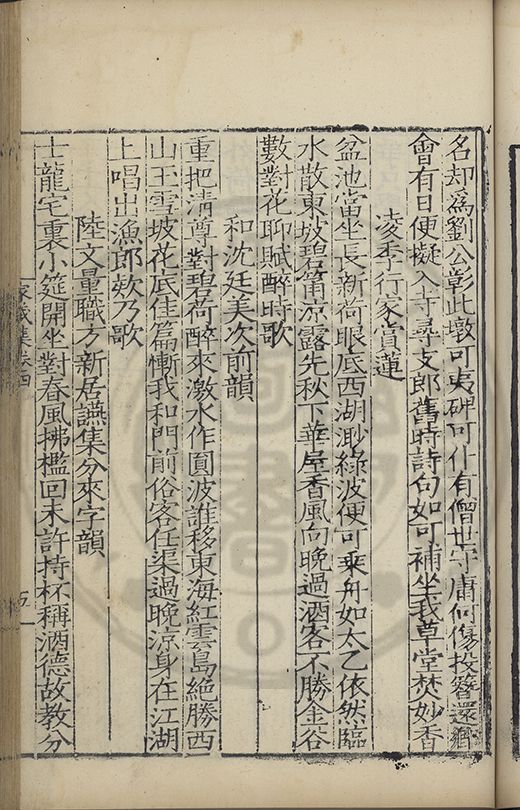 名却為劉公彰此墩可夷碑可仆有僧世守庸何傷投簪還鄉
會有日便擬入寺尋支郎舊時詩句如可補坐我草堂焚妙香
凌季行家賞蓮
盆池當坐長新荷眼底西湖渺綠波便可乗舟如太乙依然臨
水散東坡碧筩凉露先秋下華屋香風向晚過酒客不勝金谷
數對花聊賦醉時歌
和沈廷美次前韻
重把清尊對碧荷醉來激水作圓波誰移東海紅雲島絶勝西
山玉雪坡花底佳篇慚我和門前俗客任渠過晚凉身在江湖
上唱出漁郎欸乃歌
陸文量職方新居讌集分來字韻
士龍宅裏小筵開坐對春風拂檻回未許持杯稱酒德故教分
家藏集卷四
五